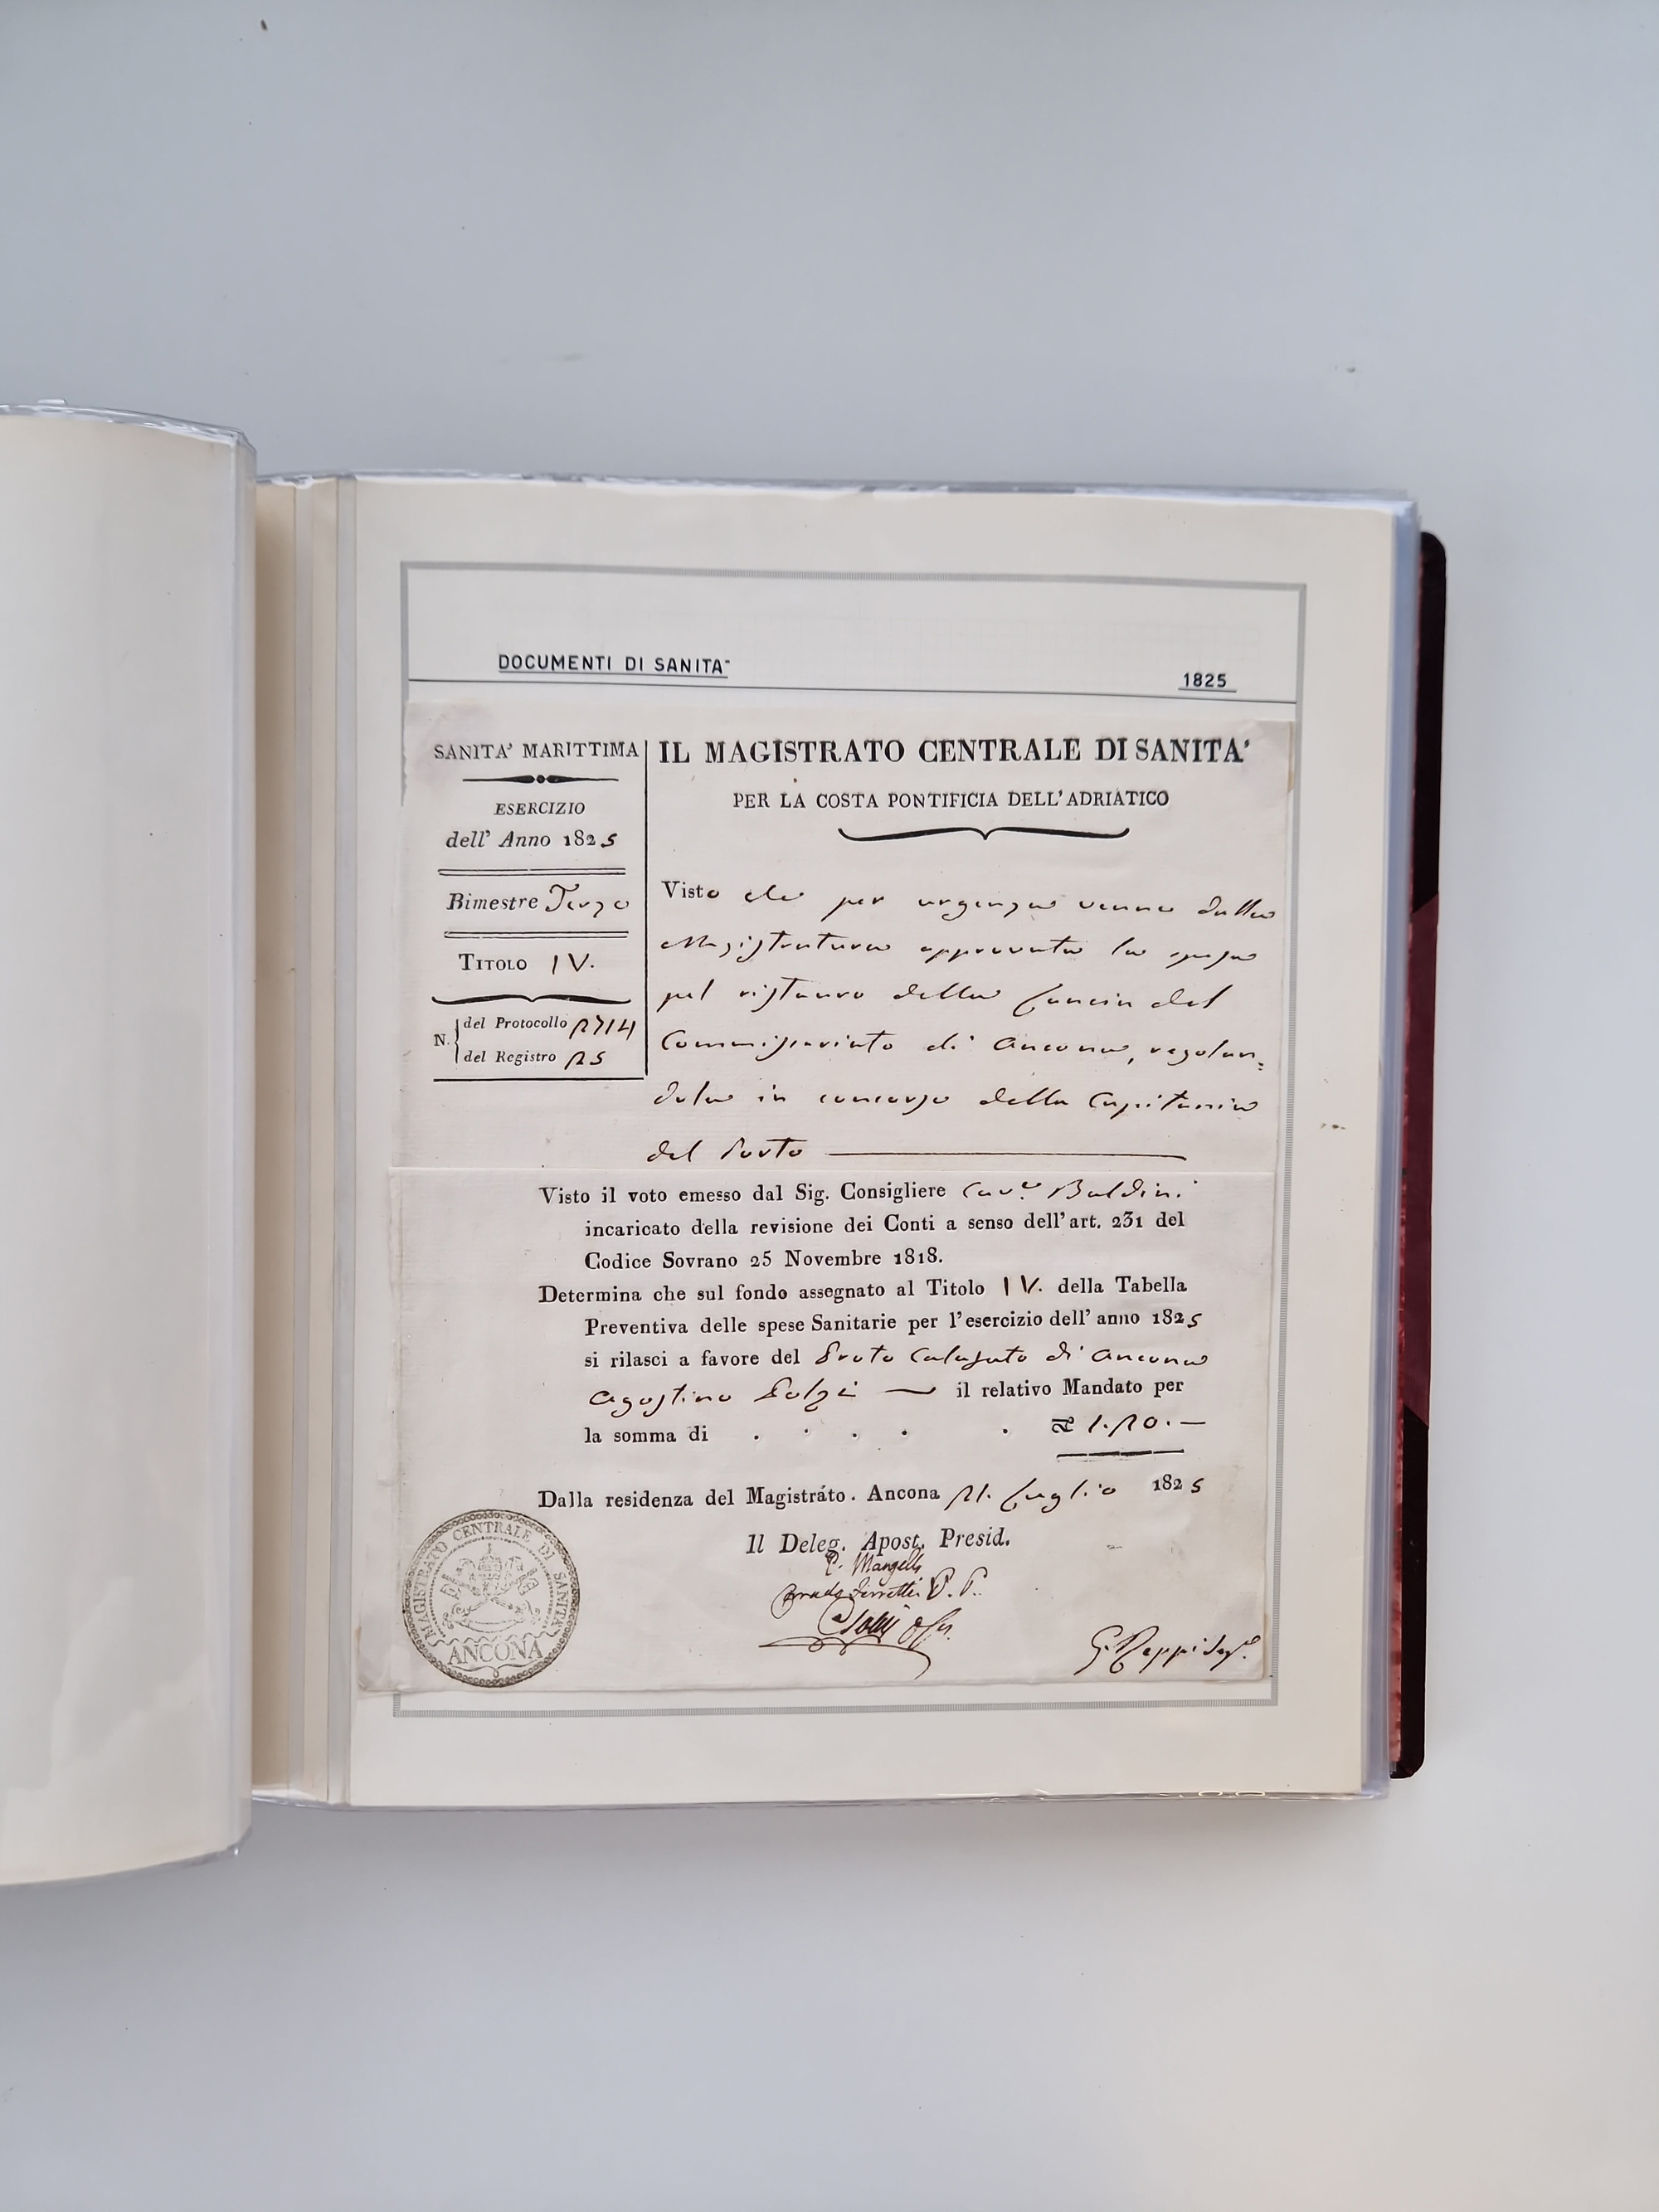 DOCUMENTI DI SANITA'
1825
SANITA' MARITTIMA
ESERCIZIO
dell' Anno 1825
Bimestre Terzo
TITOLO IV.
N. del Protocollo 2714
del Registro 25
IL MAGISTRATO CENTRALE DI SANITA'
PER LA COSTA PONTIFICIA DELL'ADRIATICO
Visto che per urgenza venne dalla
Magistratura approvata la spesa
pel ristauro della Lancia del
Commissariato di Ancona, regolan=
dola in concorso della Capitania
del Porto
Visto il voto emesso dal Sig. Consigliere Cav.e Baldini
incaricato della revisione dei Conti a senso dell'art. 231 del
Codice Sovrano 25 Novembre 1818.
Determina che sul fondo assegnato al Titolo IV. della Tabella
Preventiva delle spese Sanitarie per l'esercizio dell'anno 1825
si rilasci a favore del Proto Calafato di Ancona
Agostino il relativo Mandato per
la somma di . . . . . 1.20.—
Dalla residenza del Magistrato. Ancona 21. Luglio 1825
Il Deleg. Apost. Presid.
Mangelli
Ferretti P. P.
MAGISTRATO CENTRALE DI SANITA
ANCONA